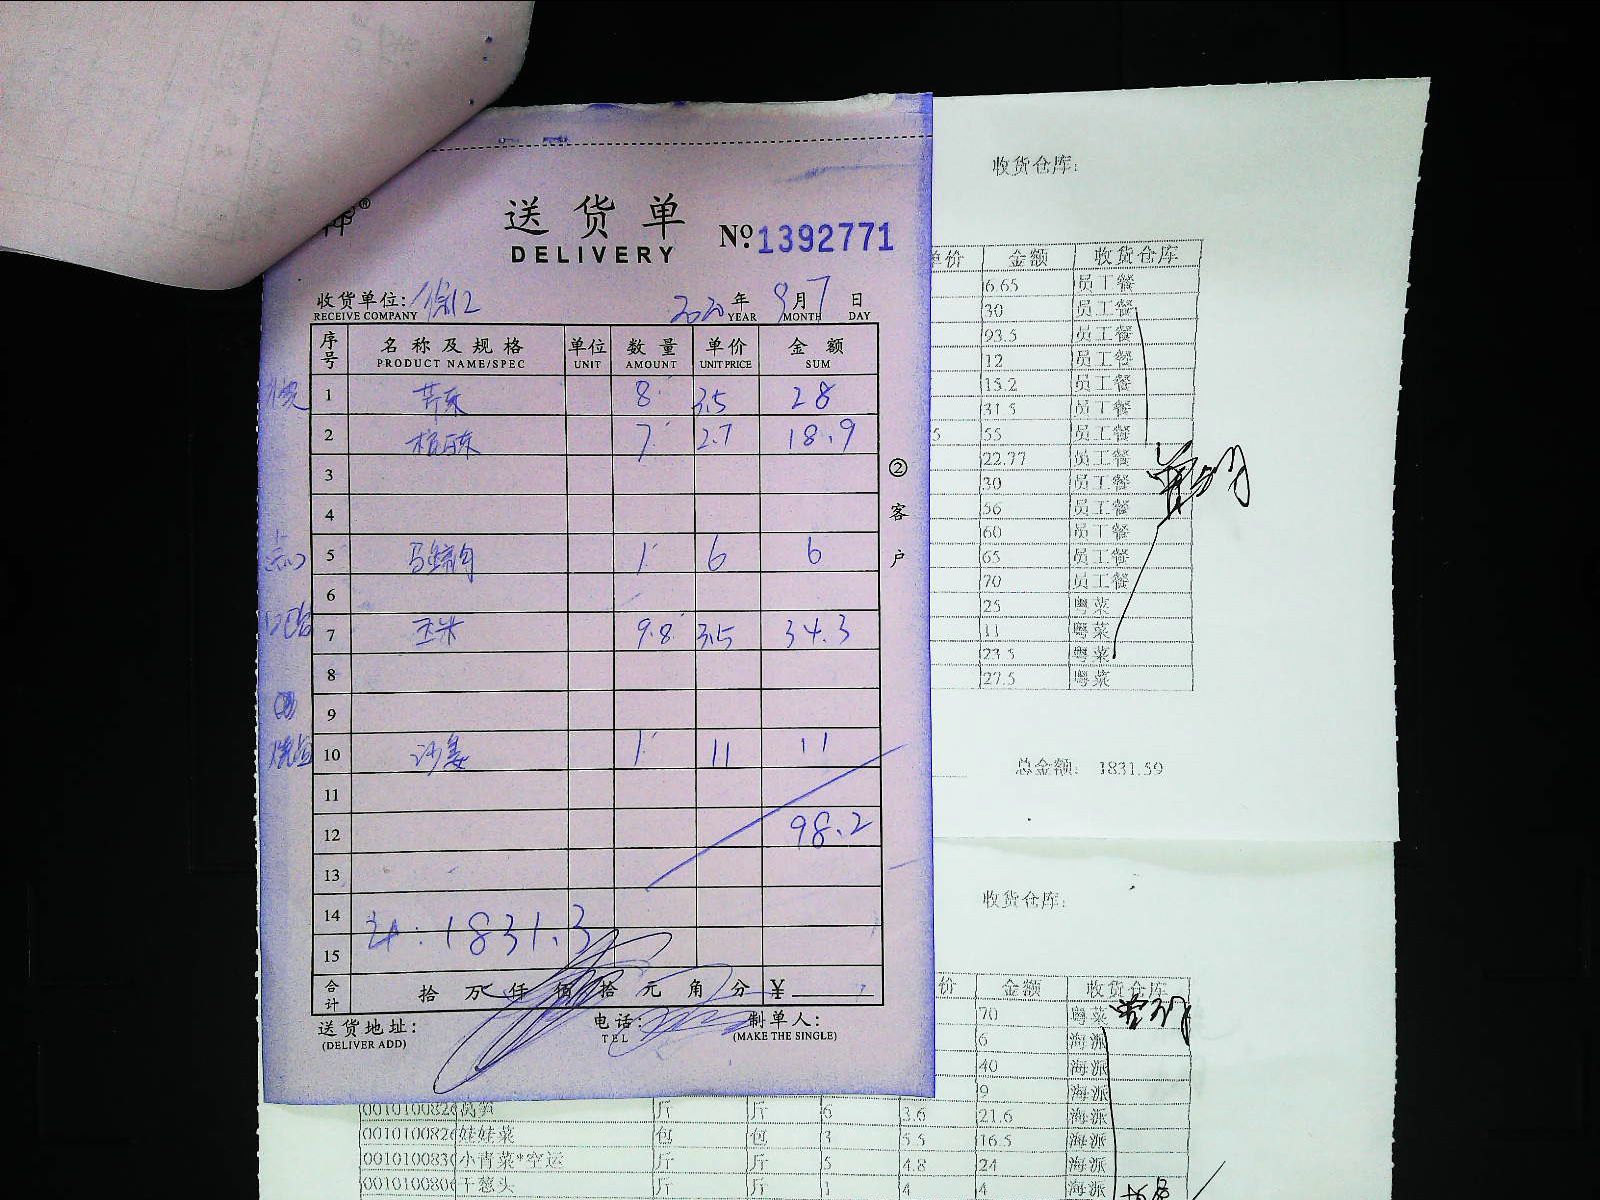 送货单
DELIVERY
№ 1392771
收货单位: 徐汇 2020年9月7日
RECEIVE COMPANY YEAR MONTH DAY
序号 名称及规格 单位 数量 单价 金额
PRODUCT NAME/SPEC UNIT AMOUNT UNIT PRICE SUM
1 芹菜 8 3.5 28
2 7 2.7 18.9
3
4
5 马蹄肉 1 6 6
6
7 玉米 9.8 3.5 34.3
8
9
10 沙姜 1 11 11
11
12 98.2
13
14
15
1831.3
合计 拾万仟佰拾元角分 ¥
送货地址: 电话: 制单人:
(DELIVER ADD) TEL (MAKE THE SINGLE)
②客户
收货仓库:
单价 金额 收货仓库
6.65 员工餐
30 员工餐
93.5 员工餐
12 员工餐
15.2 员工餐
31.5 员工餐
5 55 员工餐
22.77 员工餐
30 员工餐
56 员工餐
60 员工餐
65 员工餐
70 员工餐
25 粤菜
11 粤菜
23.5 粤菜
27.5 粤菜
总金额: 1831.59
收货仓库:
价 金额 收货仓库
70 粤菜
6 海派
40 海派
9 海派
0010100826 莴笋 斤 斤 6 3.6 21.6 海派
0010100826 娃娃菜 包 包 3 5.5 16.5 海派
0010100830 小青菜*空运 斤 斤 5 4.8 24 海派
0010100806 干葱头 斤 斤 1 4 4 海派